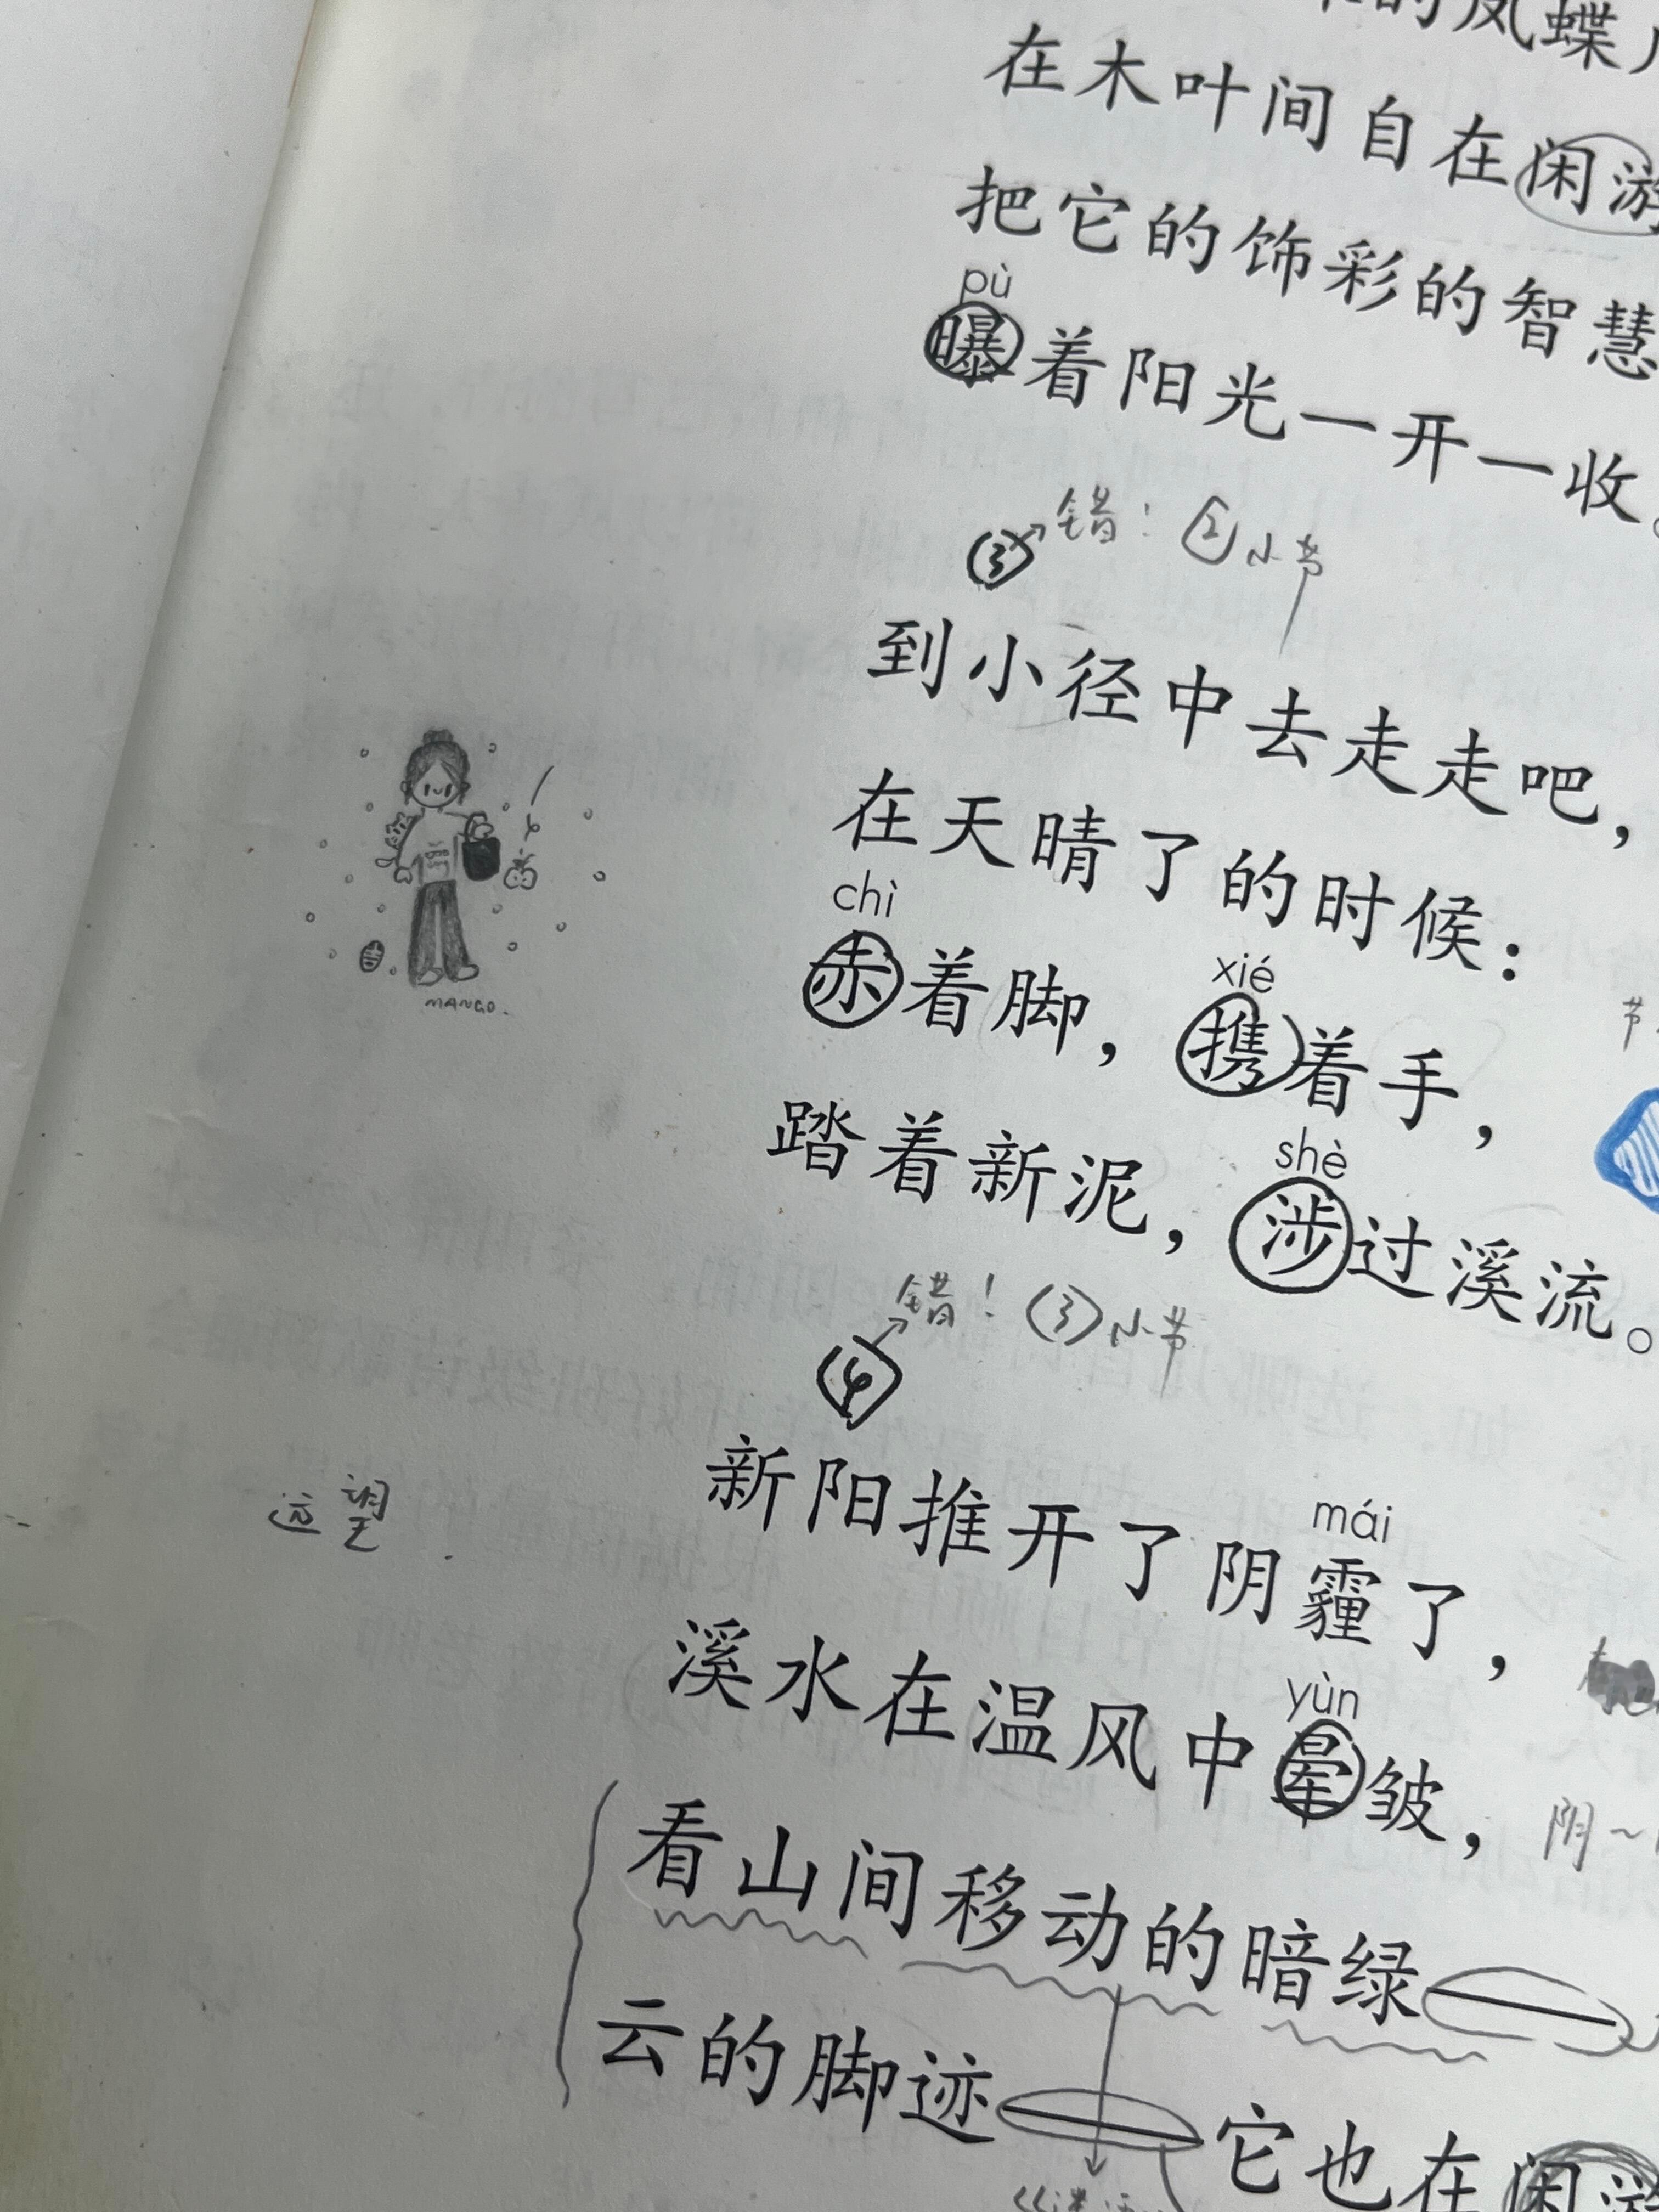 的凤蝶
在木叶间自在闲游
把它的饰彩的智慧
pù
曝着阳光一开一收。
③ 错！②小节
到小径中去走走吧，
在天晴了的时候：
chì
赤着脚，携着手，
xié
踏着新泥，涉过溪流。
shè
MANGO.
④ 错！③小节
新阳推开了阴霾了，
mái
远望
溪水在温风中晕皱，
yùn
阴～
看山间移动的暗绿——
云的脚迹——它也在闲游